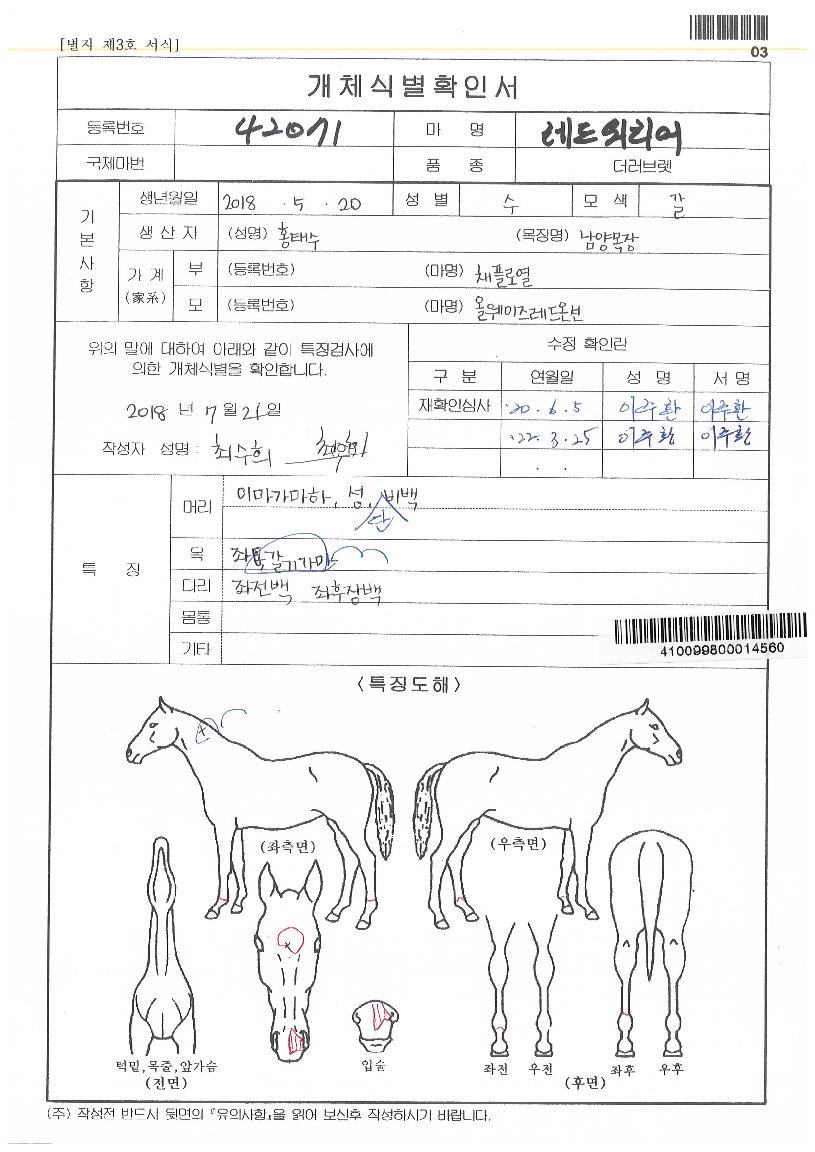 [별지 제3호 서식]
03
개체식별확인서
등록번호 42071 마 명 레드워리어
국제마번 품 종 더러브렛
기본사항
생년월일 2018 . 5 . 20 성 별 수 모 색 갈
생 산 자 (성명) 홍태수 (목장명) 남양목장
가 계 (家系)
부 (등록번호) (마명) 채플로열
모 (등록번호) (마명) 올웨이즈레드온선
위의 말에 대하여 아래와 같이 특징검사에
의한 개체식별을 확인합니다.
2018 년 7 월 21 일
작성자 성명 : 최수희
수정 확인란
구 분 연월일 성 명 서 명
재확인심사 '20 . 6 . 5 이주환 이주환
'22 . 3 . 25 이주환 이주환
. .
특 징
머리 이마가마하, 성, 비백
단
목 좌목갈기가마
다리 좌전백 좌후장백
몸통
기타
410099800014560
<특징도해>
(좌측면) (우측면)
턱밑,목줄,앞가슴
(전면)
입술
좌전 우전 좌후 우후
(후면)
(주) 작성전 반드시 뒷면의 『유의사항』을 읽어 보신후 작성하시기 바랍니다.